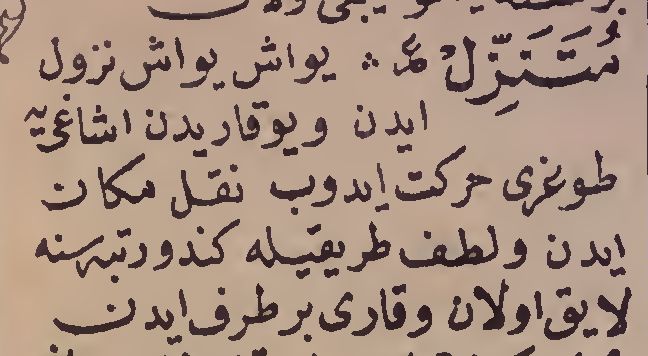 مُتَنَزِّلْ یواش یواش نزول
ایدن ویوقاریدن اشاغی‌یه
طوغری حرکت ایدوب نقل مکان
ایدن ولطف طریقیله کندو رتبه‌سنه
لایق اولان وقاری بر طرف ایدن